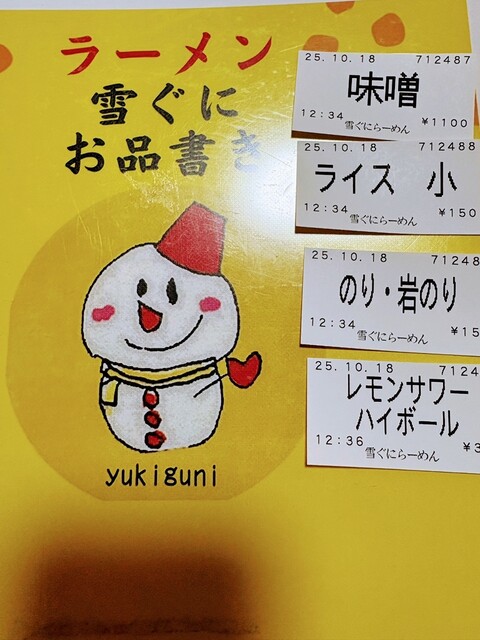 ラーメン
雪ぐに
お品書き
yukiguni
25.10.18 712487
味噌
12:34 雪ぐにらーめん ¥1100
25.10.18 712488
ライス 小
12:34 雪ぐにらーめん ¥150
25.10.18 71248
のり・岩のり
12:34 雪ぐにらーめん ¥15
25.10.18 7124
レモンサワー
ハイボール
12:36 雪ぐにらーめん ¥3